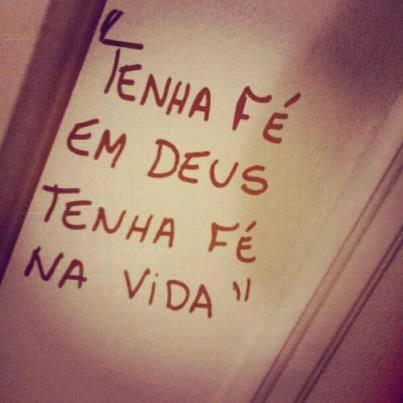 "TENHA FÉ
EM DEUS
TENHA FÉ
NA ViDA"